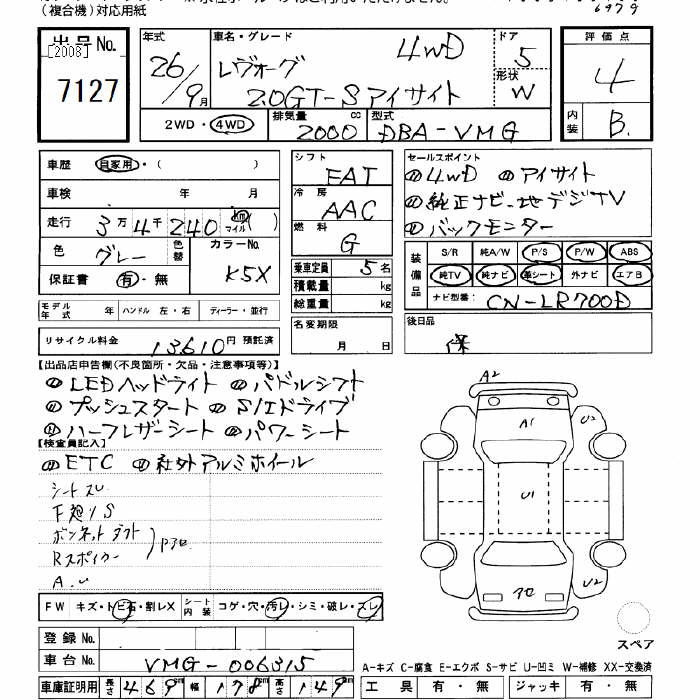 （複合機）対応用紙
6979
出品No.
[2008]
7127
年式
26/9月
車名・グレード
レヴォーグ 4WD
2.0GT-S アイサイト
ドア
5
形状
W
2WD・4WD
排気量
2000 cc
型式
DBA-VMG
評価点
4
内装
B.
車歴 自家用・（ ）
車検 年 月
走行 3万4千240 km マイル
色 グレー 色替
カラーNo.
K5X
保証書 有・無
シフト
FAT
冷房
AAC
燃料
G
乗車定員 5名
積載量 kg
総重量 kg
セールスポイント
4WD アイサイト
純正ナビ・地デジTV
バックモニター
装備品
S/R 純A/W P/S P/W ABS
純TV 純ナビ 革シート 外ナビ エアB
ナビ型番: CN-LR700D
モデル年式 年 ハンドル 左・右 ディーラー・並行
リサイクル料金 13610円 預託済
名変期限
月 日
後日品
保
【出品店申告欄(不良箇所・欠品・注意事項等)】
LEDヘッドライト パドルシフト
プッシュスタート S/Iドライブ
ハーフレザーシート パワーシート
【検査員記入】
ETC 社外アルミホイール
シートスレ
下廻りS
ボンネットダクト
Rスポイラー
A.U
FW キズ・トビ石・割レX シート内装 コゲ・穴・汚レ・シミ・破レ・スレ
A2
A1
U2
U1
U2
スペア
登録No.
車台No. VMG-006315
A-キズ C-腐食 E-エクボ S-サビ U-凹ミ W-補修 XX-交換済
車庫証明用 長さ 469cm 幅 178cm 高さ 149cm
工具 有・無 ジャッキ 有・無